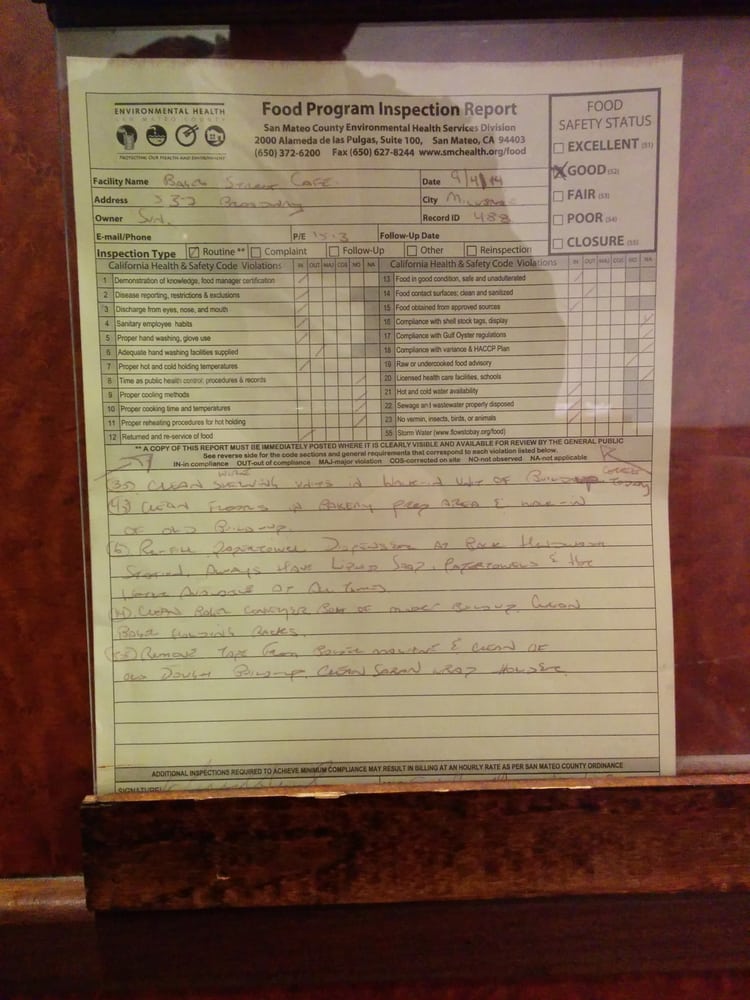 ENVIRONMENTAL HEALTH
SAN MATEO COUNTY
PROTECTING OUR HEALTH AND ENVIRONMENT
Food Program Inspection Report
San Mateo County Environmental Health Services Division
2000 Alameda de las Pulgas, Suite 100, San Mateo, CA 94403
(650) 372-6200 Fax (650) 627-8244 www.smchealth.org/food
FOOD
SAFETY STATUS
EXCELLENT (51)
GOOD (52)
FAIR (53)
POOR (54)
CLOSURE (55)
Facility Name Bagel Street Cafe Date 9/4/14
Address 332 Broadway City Millbrae
Owner Sun Record ID 488
E-mail/Phone P/E Follow-Up Date
Inspection Type Routine ** Complaint Follow-Up Other Reinspection
California Health & Safety Code Violations IN OUT MAJ COS NO NA
1 Demonstration of knowledge, food manager certification
2 Disease reporting, restrictions & exclusions
3 Discharge from eyes, nose, and mouth
4 Sanitary employee habits
5 Proper hand washing, glove use
6 Adequate hand washing facilities supplied
7 Proper hot and cold holding temperatures
8 Time as public health control; procedures & records
9 Proper cooling methods
10 Proper cooking time and temperatures
11 Proper reheating procedures for hot holding
12 Returned and re-service of food
California Health & Safety Code Violations IN OUT MAJ COS NO NA
13 Food in good condition, safe and unadulterated
14 Food contact surfaces; clean and sanitized
15 Food obtained from approved sources
16 Compliance with shell stock tags, display
17 Compliance with Gulf Oyster regulations
18 Compliance with variance & HACCP Plan
19 Raw or undercooked food advisory
20 Licensed health care facilities, schools
21 Hot and cold water availability
22 Sewage and wastewater properly disposed
23 No vermin, insects, birds, or animals
55 Storm Water (www.flowstobay.org/food)
** A COPY OF THIS REPORT MUST BE IMMEDIATELY POSTED WHERE IT IS CLEARLY VISIBLE AND AVAILABLE FOR REVIEW BY THE GENERAL PUBLIC
See reverse side for the code sections and general requirements that correspond to each violation listed below.
IN-in compliance OUT-out of compliance MAJ-major violation COS-corrected on site NO-not observed NA-not applicable
CLEAN SHELVING UNITS IN WALK-IN UNIT OF BUILDUP
CLEAN FLOORS IN BAKERY PREP AREA & WALK-IN
OF OLD BUILD-UP.
(6) RE-FILL PAPERTOWEL DISPENSER AT BACK HANDWASH
STATION, ALWAYS HAVE LIQUID SOAP, PAPERTOWELS & HOT
WATER AVAILABLE AT ALL TIMES
(14) CLEAN BAGEL CONVEYER BELT OF BUILDUP. CLEAN
BAGEL HOLDING RACKS.
REMOVE TAPE FROM MACHINE & CLEAN OF
OLD DOUGH BUILD-UP. CLEAN SARAN WRAP HOLDER.
ADDITIONAL INSPECTIONS REQUIRED TO ACHIEVE MINIMUM COMPLIANCE MAY RESULT IN BILLING AT AN HOURLY RATE AS PER SAN MATEO COUNTY ORDINANCE
SIGNATURE